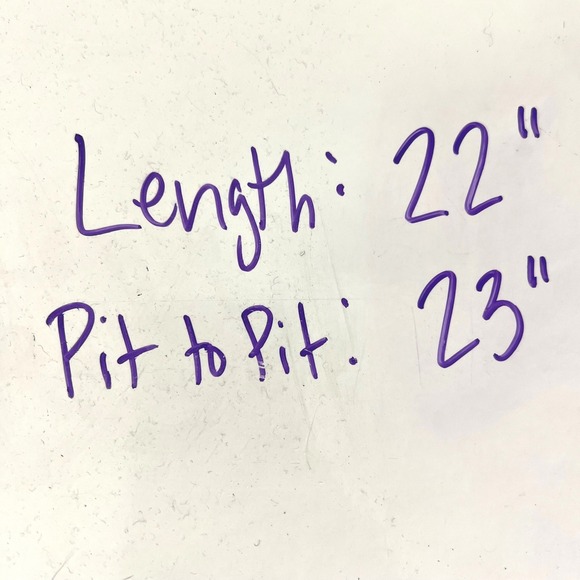 Length: 22"
Pit to Pit: 23"